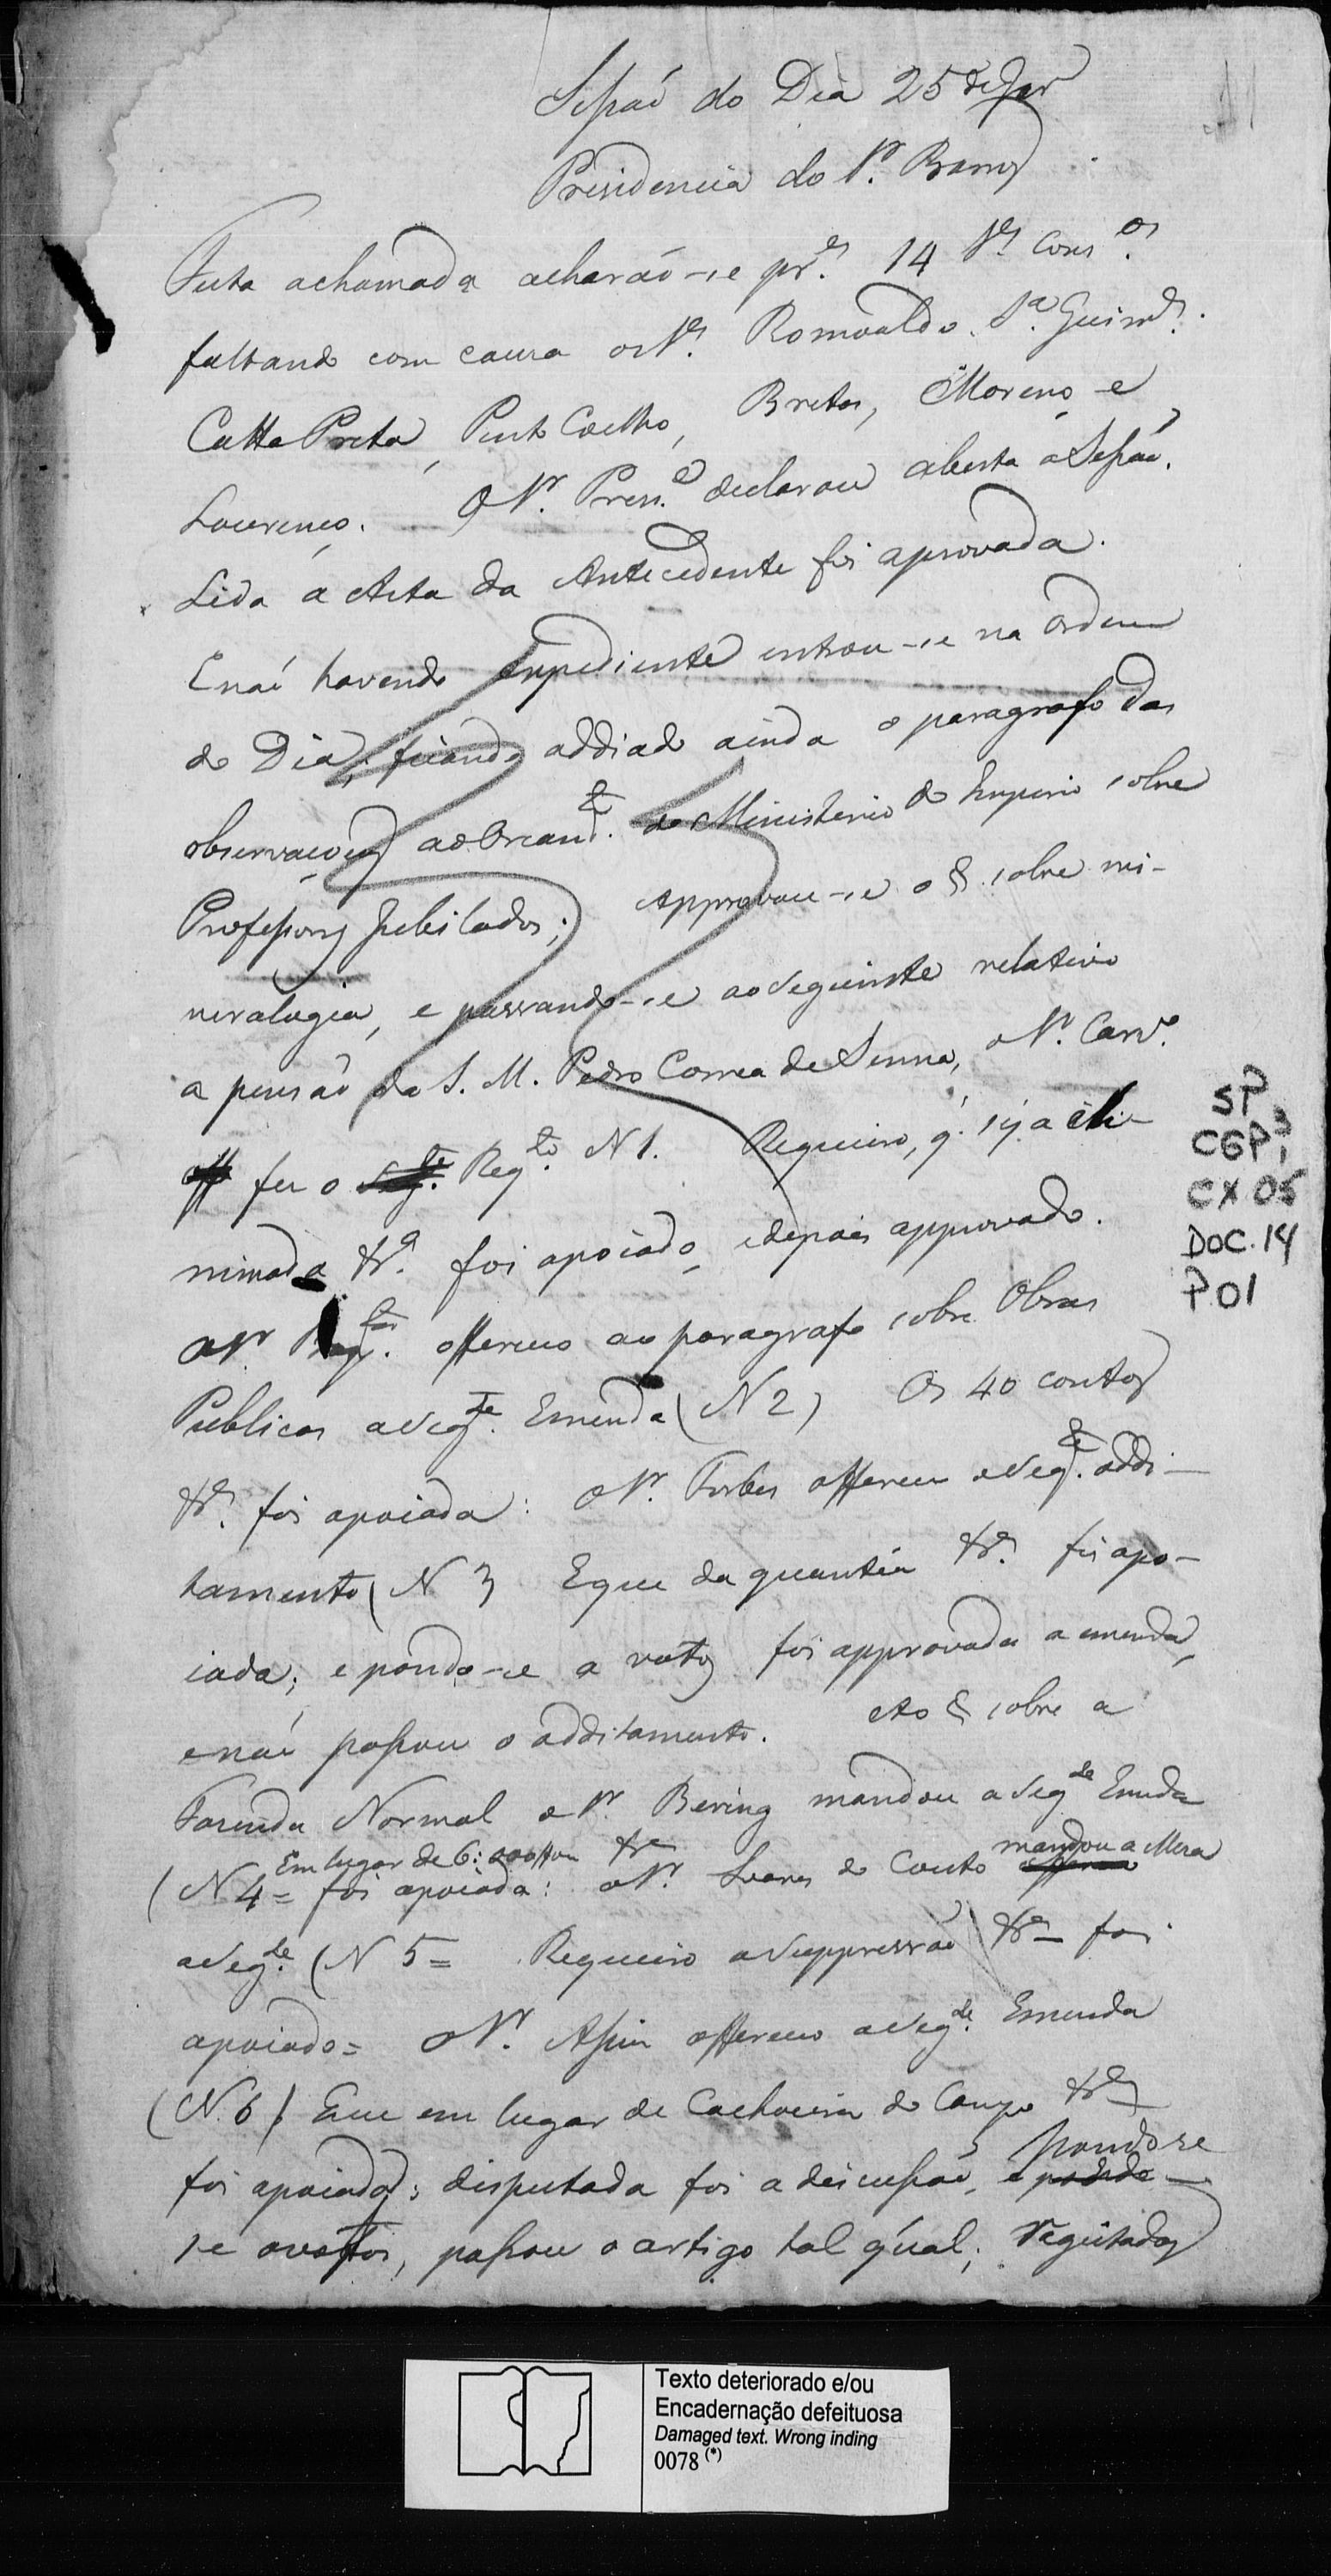 Sessaõ do Dia 25 de Jan.ro
Presidencia do Sr. Barros
Feita achamada acharaõ-se pr.es 14 Srs. Cons.os
faltando com causa os Srs. Romoaldo, Sª. Guim.es
Catta Preta, Pinto Coelho, Bretas, Moreno e
Lourenço. O Sr. Pres.e declarou aberta a Sessaõ.
Lida a Acta da Antecedente foi aprovada.
E naõ havendo Expediente entrou-se na ordem
do Dia, ficando addiado ainda o paragrafo das
observaçoens ao Orcam.to do Ministerio do Imperio sobre
Professores Jubilados; Approvou-se o § sobre mi-
neralogia, e passando-se ao seguinte relativo
a pensaõ do S. M. Pedro Correa de Senna, o Sr. Carv.o
fez o Reg.to N 1. Requeiro, q. sej.a eli-
minada &ª. foi apoiado, e depois approvado.
O Sr. offereceo ao paragrafo sobre Obras
Publicas a Seg.te Emenda (N 2) Os 40 contos
&ª. foi apoiada: O Sr. Forbes offereceu o Seg.te addi-
tamento (N 3 E que da quantia &ª. foi apo-
iada; e pondo-se a votos foi approvada a emenda,
e naõ passou o additamento. Ao § sobre a
Fazenda Normal o Sr. Bering mandou a Seg.te Emenda
Em lugar de 6: &ª mandou a Mesa
(N 4 = foi apoiada: o Sr. Soares do Couto
a Seg.te (N 5 = Requeiro a Suppressaõ &ª - foi
apoiado = O Sr. Assim offereceo a Seg.te Emenda
(N. 6) Que em lugar de Cachoeira do Campo &ª
pondo se
foi apoiada; disputada foi a discussaõ, e
se a votos, passou o artigo tal qual; regeitadas
SP
CGP³1
CX 05
DOC. 14
P.01
Texto deteriorado e/ou
Encadernação defeituosa
Damaged text. Wrong inding
0078 (*)